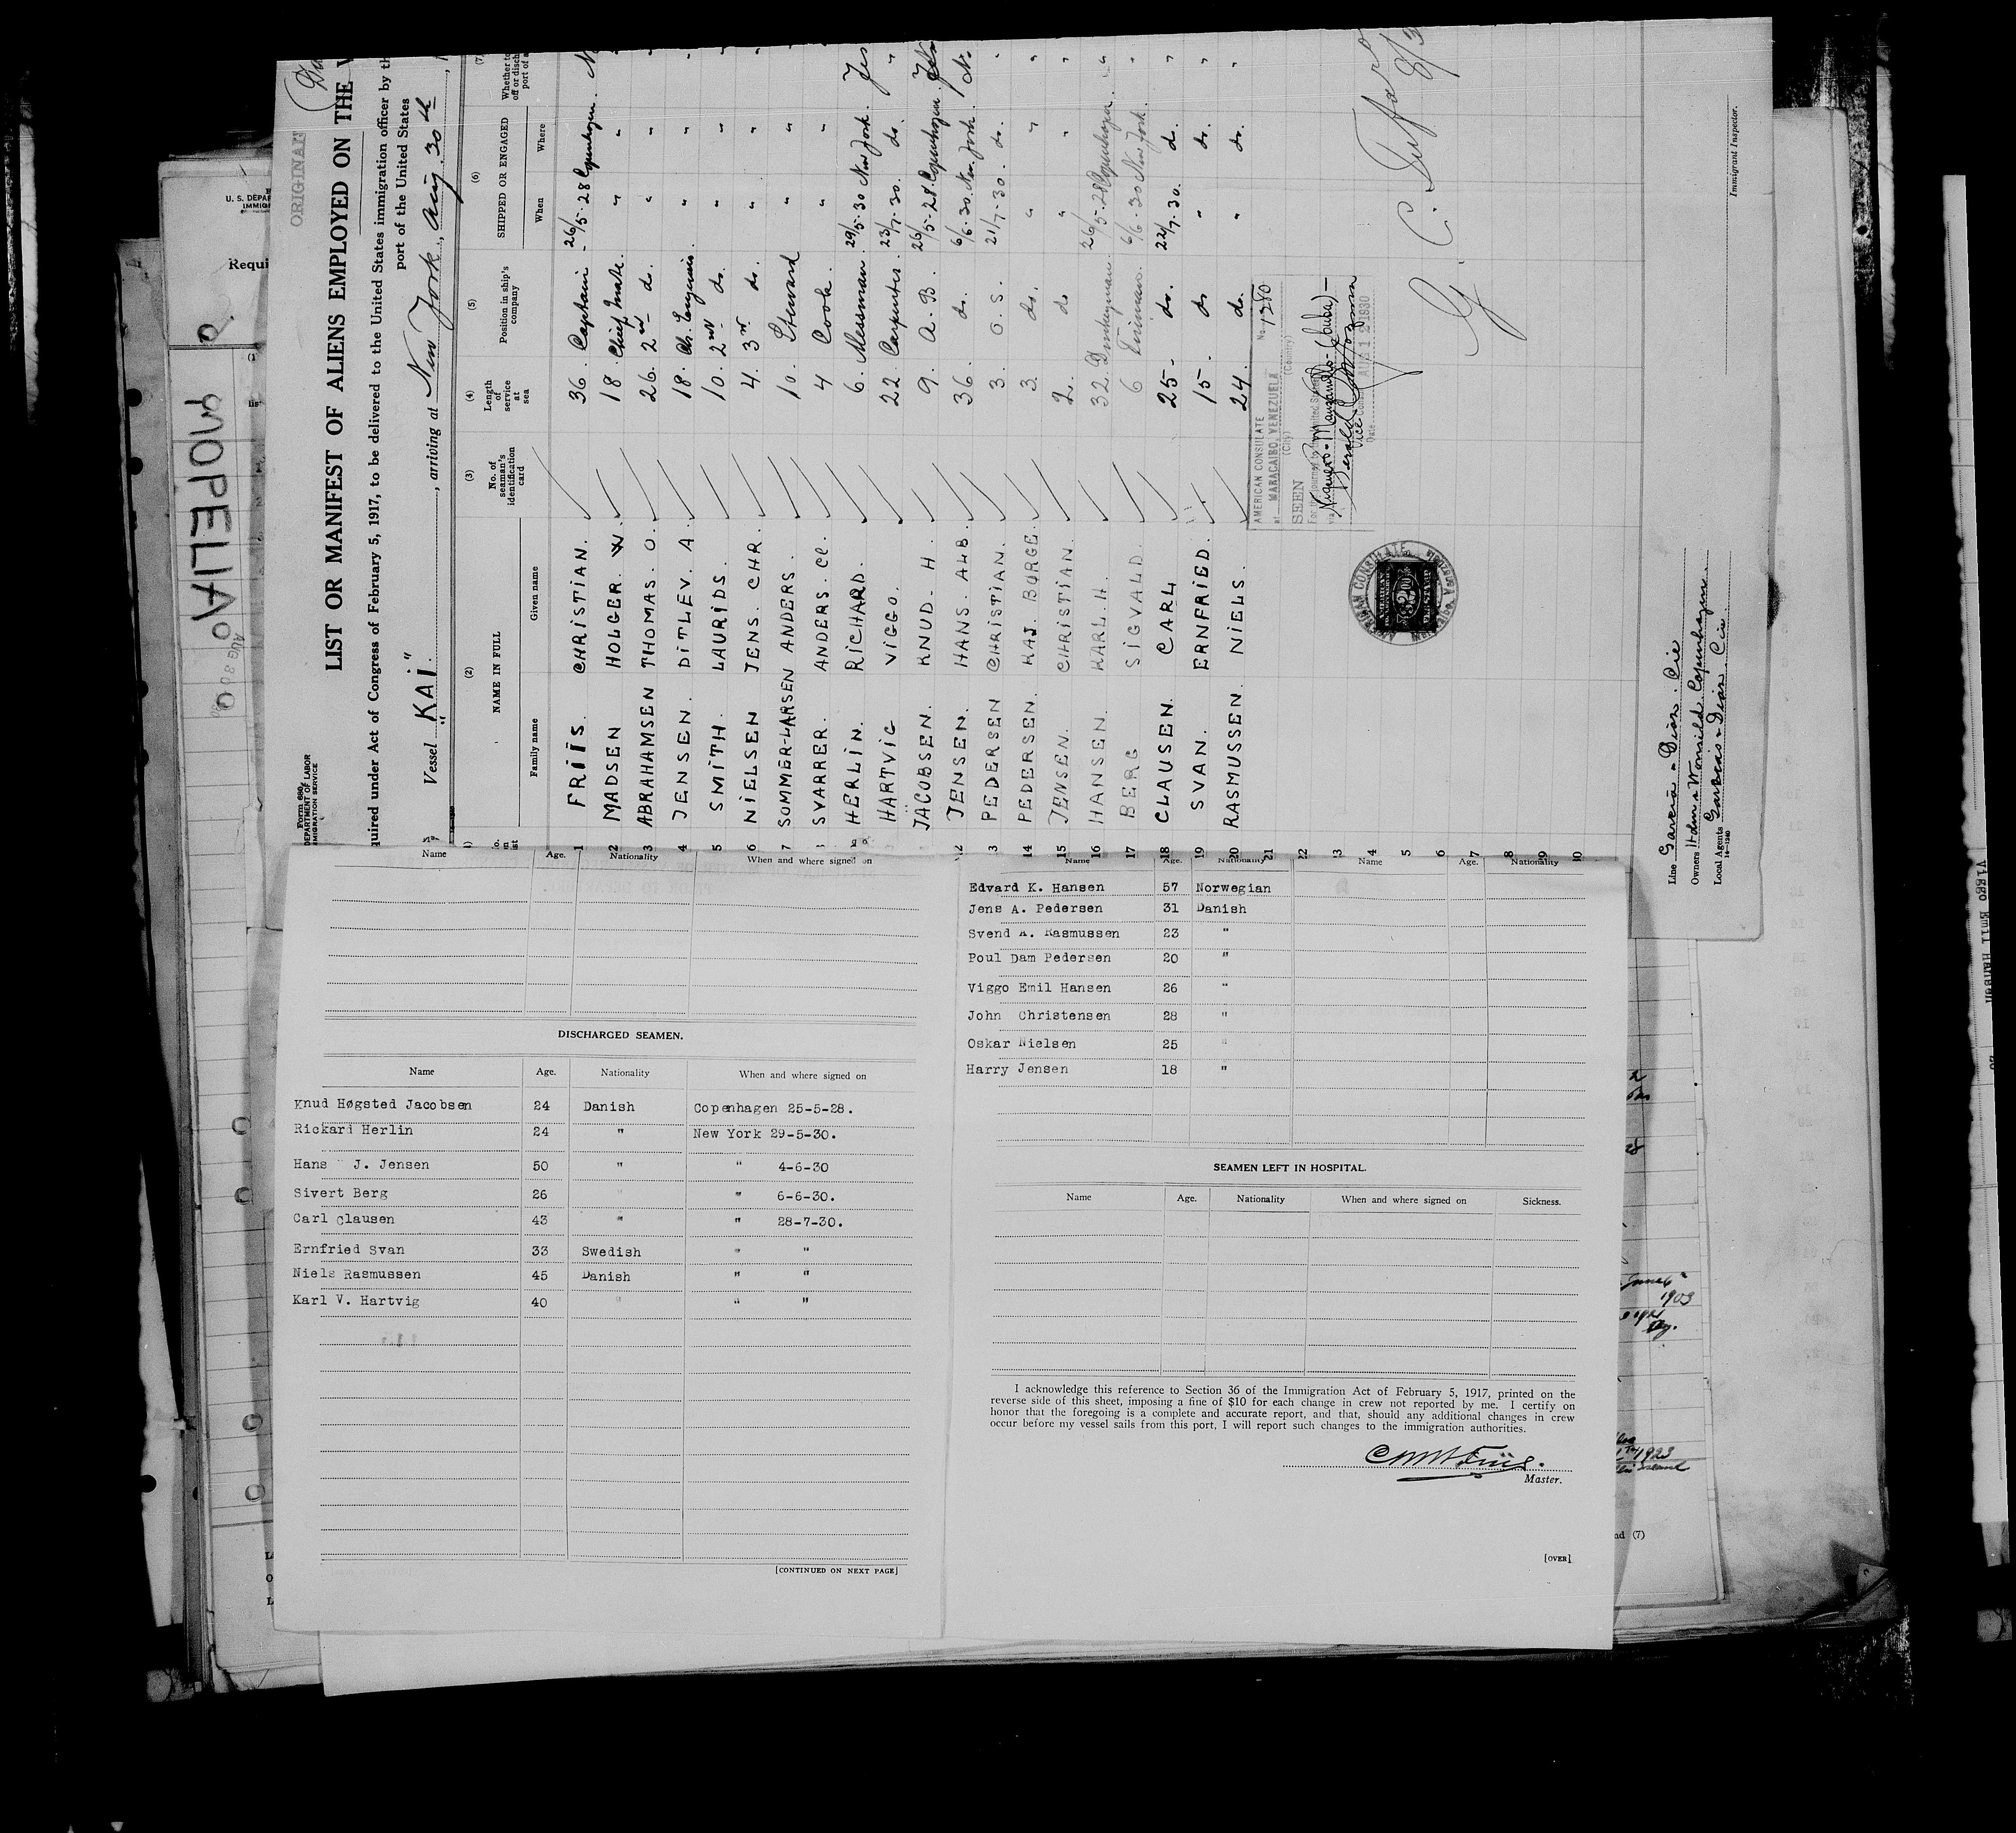 ORIGINAL
Form 680
DEPARTMENT OF LABOR
IMMIGRATION SERVICE
LIST OR MANIFEST OF ALIENS EMPLOYED ON THE
quired under Act of Congress of February 5, 1917, to be delivered to the United States immigration officer by th
port of the United States
Vessel "KAI" , arriving at New York, Aug. 30th
(2) (3) (4) (5) (6) (7)
NAME IN FULL No. of seaman's identification card Length of service at sea Position in ship's company SHIPPED OR ENGAGED
Family name Given name When Where
1 FRIIS. CHRISTIAN. 36. Captain 26/5-28 Copenhagen.
2 MADSEN HOLGER. W. 18. Chief mate. " "
3 ABRAHAMSEN THOMAS. O. 26. 2nd do. " "
4 JENSEN. DITLEV. A. 18. " "
5 SMITH. LAURIDS. 10. 2nd do. " "
6 NIELSEN JENS. CHR. 4. 3rd do. " "
7 SOMMER-LARSEN ANDERS. 10. Steward " "
SVARRER. ANDERS. Cl. 4 Cook. " "
HERLIN. RICHARD. 6. Messman. 29/5-30 New York. Yes
HARTVIG VIGGO. 22. Carpenter. 23/7-30. do. "
JACOBSEN. KNUD. H. 9. A.B. 26/5-28 Copenhagen.
12 JENSEN. HANS. ALB. 36. do. 6/6-30. New York.
13 PEDERSEN CHRISTIAN. 3. O.S. 21/7-30. do. "
14 PEDERSEN. KAJ. BØRGE. 3. do. " " "
15 JENSEN. CHRISTIAN. 2. do " " "
16 HANSEN. KARL. H. 32. Donkeyman. 26/5-28 Copenhagen. "
17 BERG SIGVALD. 6 Fireman. 6/6-30 New York. "
18 CLAUSEN. CARL 25- do. 22/7-30. do. "
19 SVAN. ERNFRIED. 15. do " do. "
20 RASMUSSEN. NIELS. 24. do. " do. "
21
22
AMERICAN CONSULATE No. 1280
at MARACAIBO, VENEZUELA
(City) (Country)
SEEN
Vice Consul
Date AUG 12 1930
Immigrant Inspector.
Line Garcia & Dian. Cie
Owners Holm & Wonsild Copenhagen.
Local Agents Garcias & Dian. Cie.
U. S. DEPAR
Requi
Name Age. Nationality When and where signed on
DISCHARGED SEAMEN.
Name Age. Nationality When and where signed on
Knud Høgsted Jacobsen 24 Danish Copenhagen 25-5-28.
Rickard Herlin 24 " New York 29-5-30.
Hans J. Jensen 50 " " 4-6-30
Sivert Berg 26 " " 6-6-30.
Carl Clausen 43 " " 28-7-30.
Ernfried Svan 33 Swedish " "
Niels Rasmussen 45 Danish " "
Karl V. Hartvig 40 " " "
[CONTINUED ON NEXT PAGE]
Name Age. Nationality Name Age. Nationality
Edvard K. Hansen 57 Norwegian
Jens A. Pedersen 31 Danish
Svend A. Rasmussen 23 "
Poul Dam Pedersen 20 "
Viggo Emil Hansen 26 "
John Christensen 28 "
Oskar Nielsen 25 "
Harry Jensen 18 "
SEAMEN LEFT IN HOSPITAL.
Name Age. Nationality When and where signed on Sickness.
I acknowledge this reference to Section 36 of the Immigration Act of February 5, 1917, printed on the
reverse side of this sheet, imposing a fine of $10 for each change in crew not reported by me. I certify on
honor that the foregoing is a complete and accurate report, and that, should any additional changes in crew
occur before my vessel sails from this port, I will report such changes to the immigration authorities.
Master.
[OVER]
nd (7)
Viggo Emil Hansen